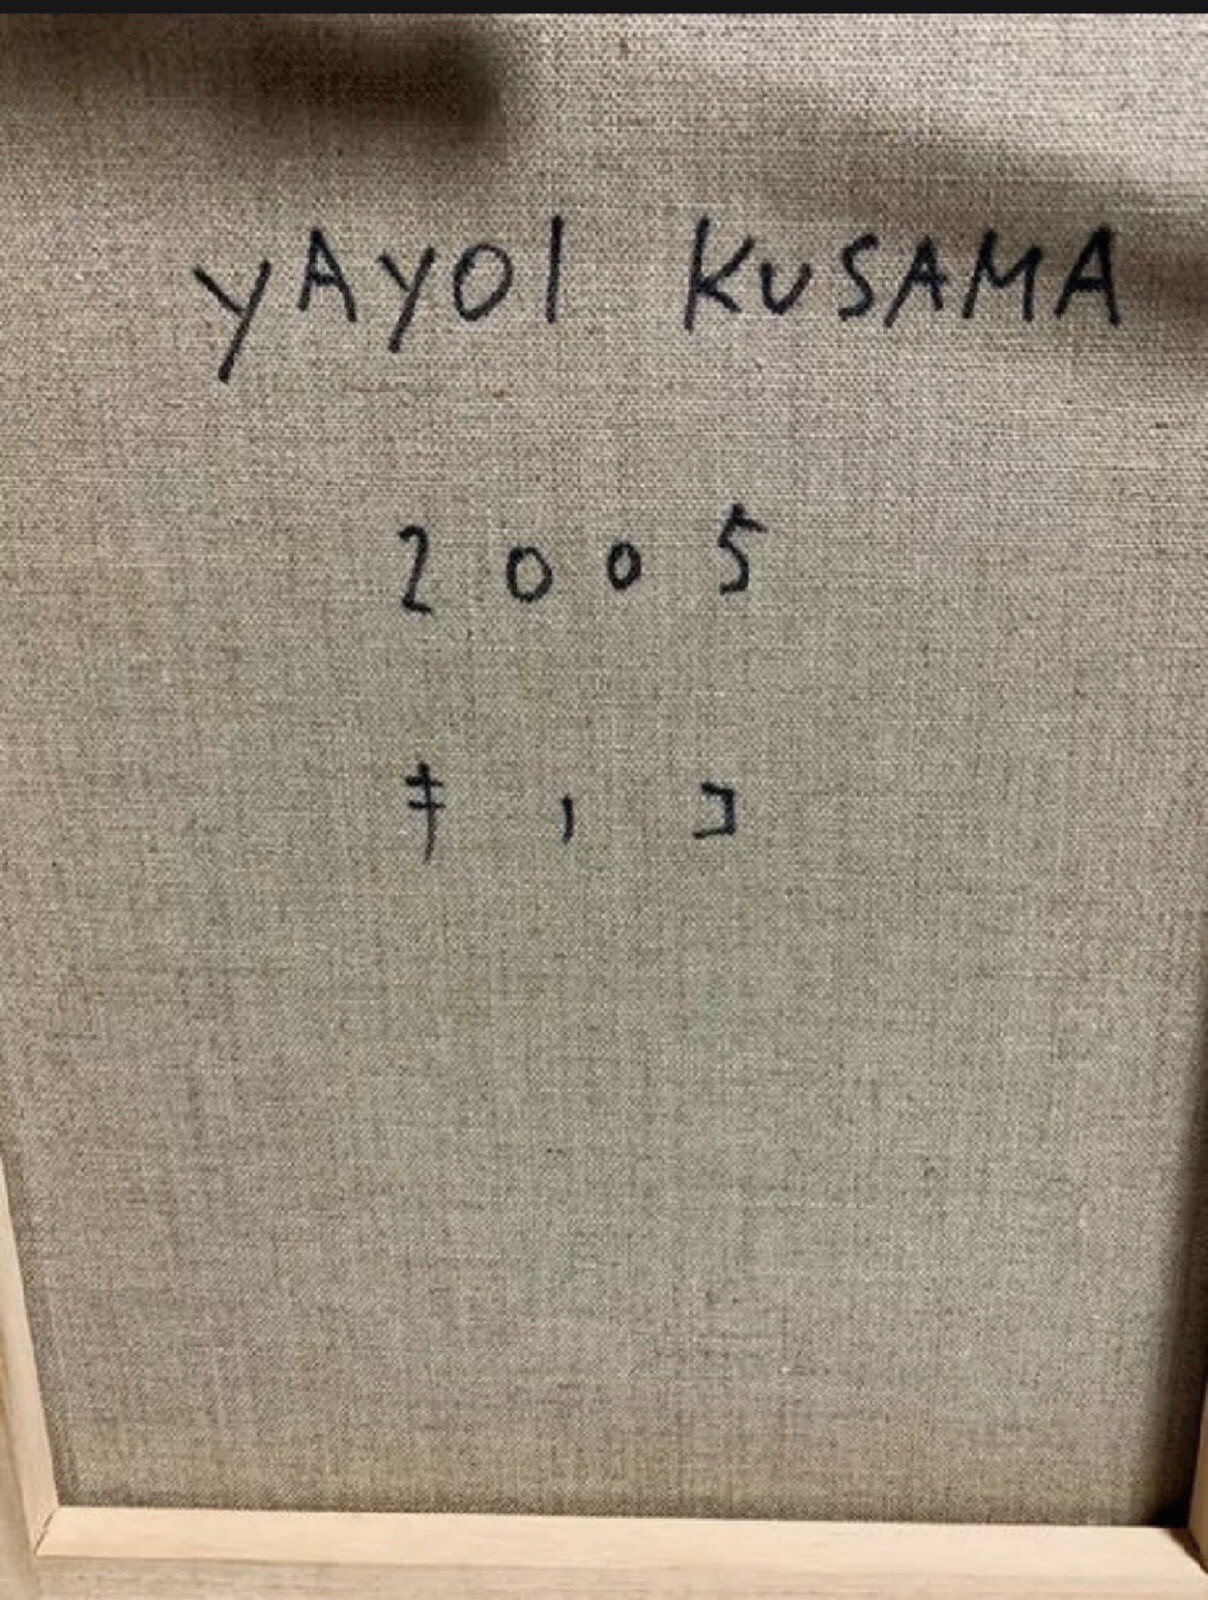 YAYOI KUSAMA
2005
キノコ